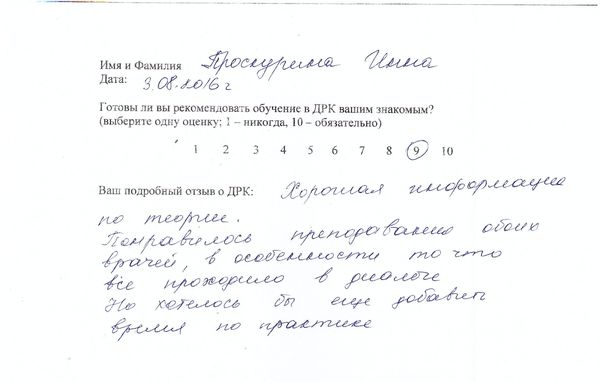 Имя и Фамилия Проскурина Инна
Дата: 3.08.2016 г
Готовы ли вы рекомендовать обучение в ДРК вашим знакомым?
(выберите одну оценку: 1 – никогда, 10 – обязательно)
1 2 3 4 5 6 7 8 9 10
Ваш подробный отзыв о ДРК: Хорошая информация
по теории.
Понравилось преподавание обоих
врачей, в особенности то что
все проходило в диалоге
Но хотелось бы еще добавить
время по практике